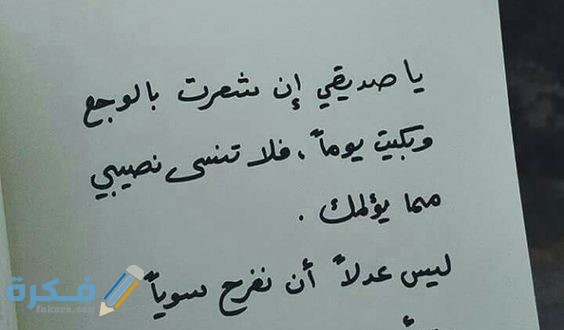 يا صديقي إن شعرت بالوجع
وبكيت يوماً ، فلا تنسى نصيبي
مما يؤلمك .
ليس عدلاً أن نفرح سوياً
فكرة
fekera.com